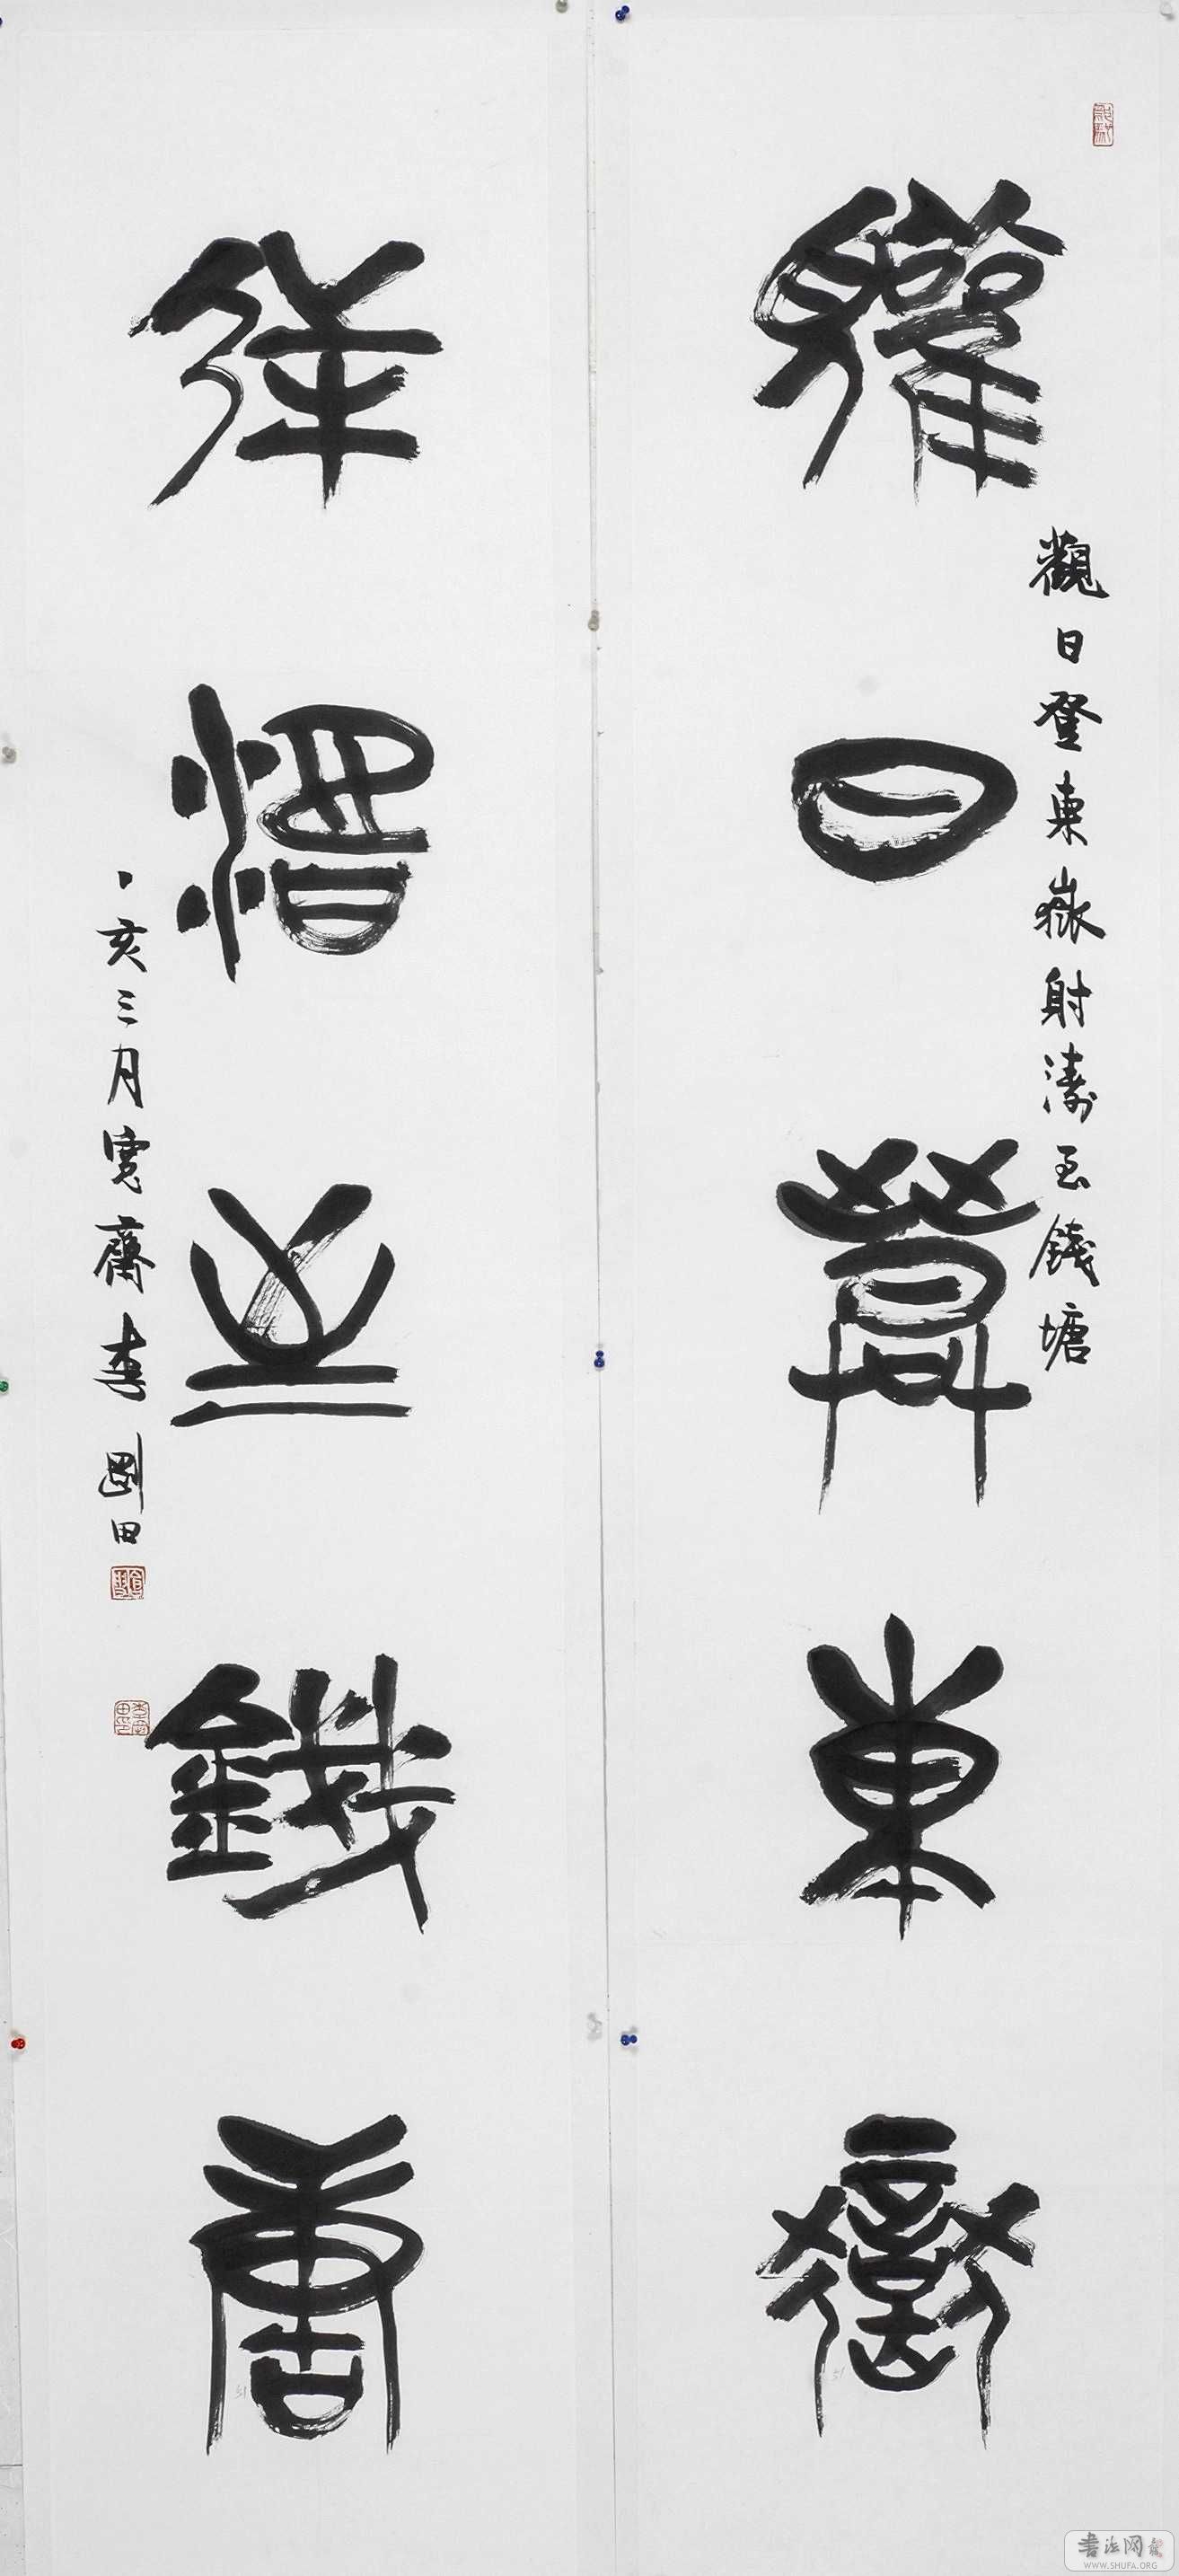 觀日登東嶽
觀日登東嶽射濤至錢塘
射濤至錢唐
丁亥三月寬齋李剛田
书法网
WWW.SHUFA.ORG